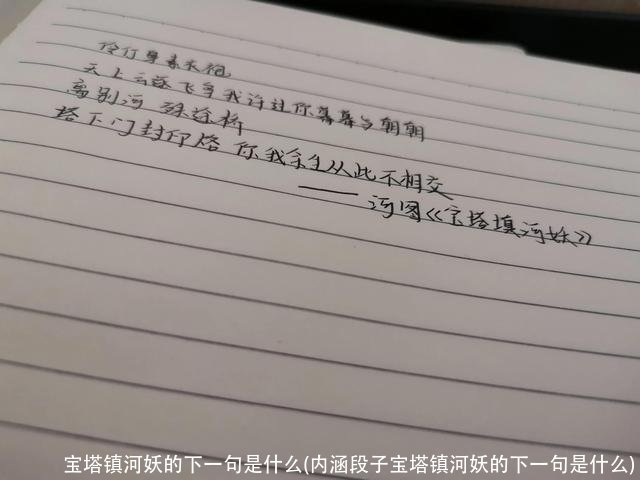 伶仃单素衣袍
天上云越飞鸟我许过你暮暮与朝朝
离别河 殊途桥
塔下门封印烙 你我余生从此不相交
——河图《宝塔填河妖》
宝塔镇河妖的下一句是什么(内涵段子宝塔镇河妖的下一句是什么)